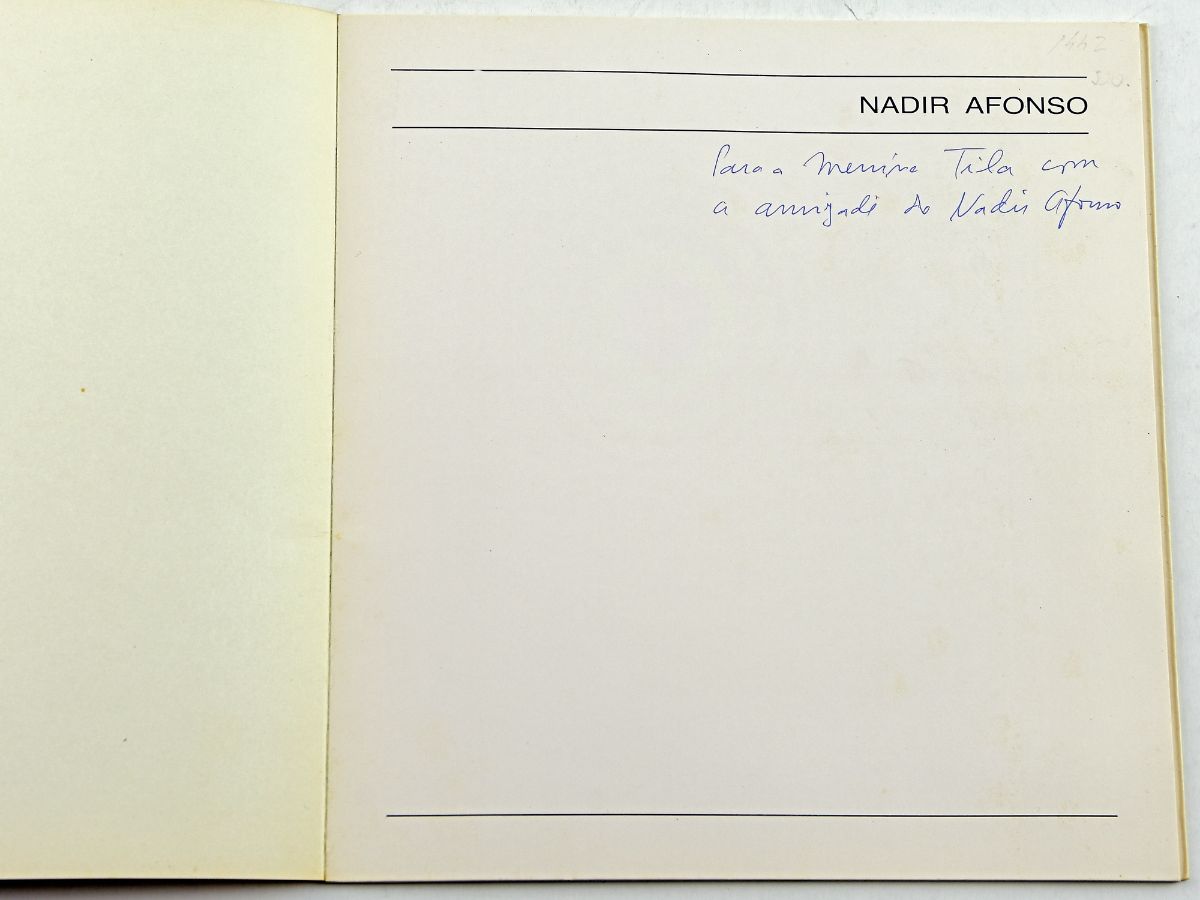 NADIR AFONSO
Para a Menina Tila com
a amizade do Nadir Afonso